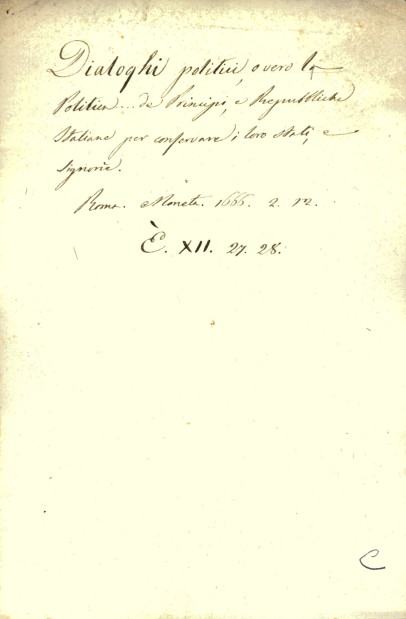 Dialoghi politici, overo la
Politica... de Principi, e Repubbliche
Italiane per conservare i loro stati, e
signorie.
Roma. Moneta. 1666. 2. 12.
È. XII. 27. 28.
C